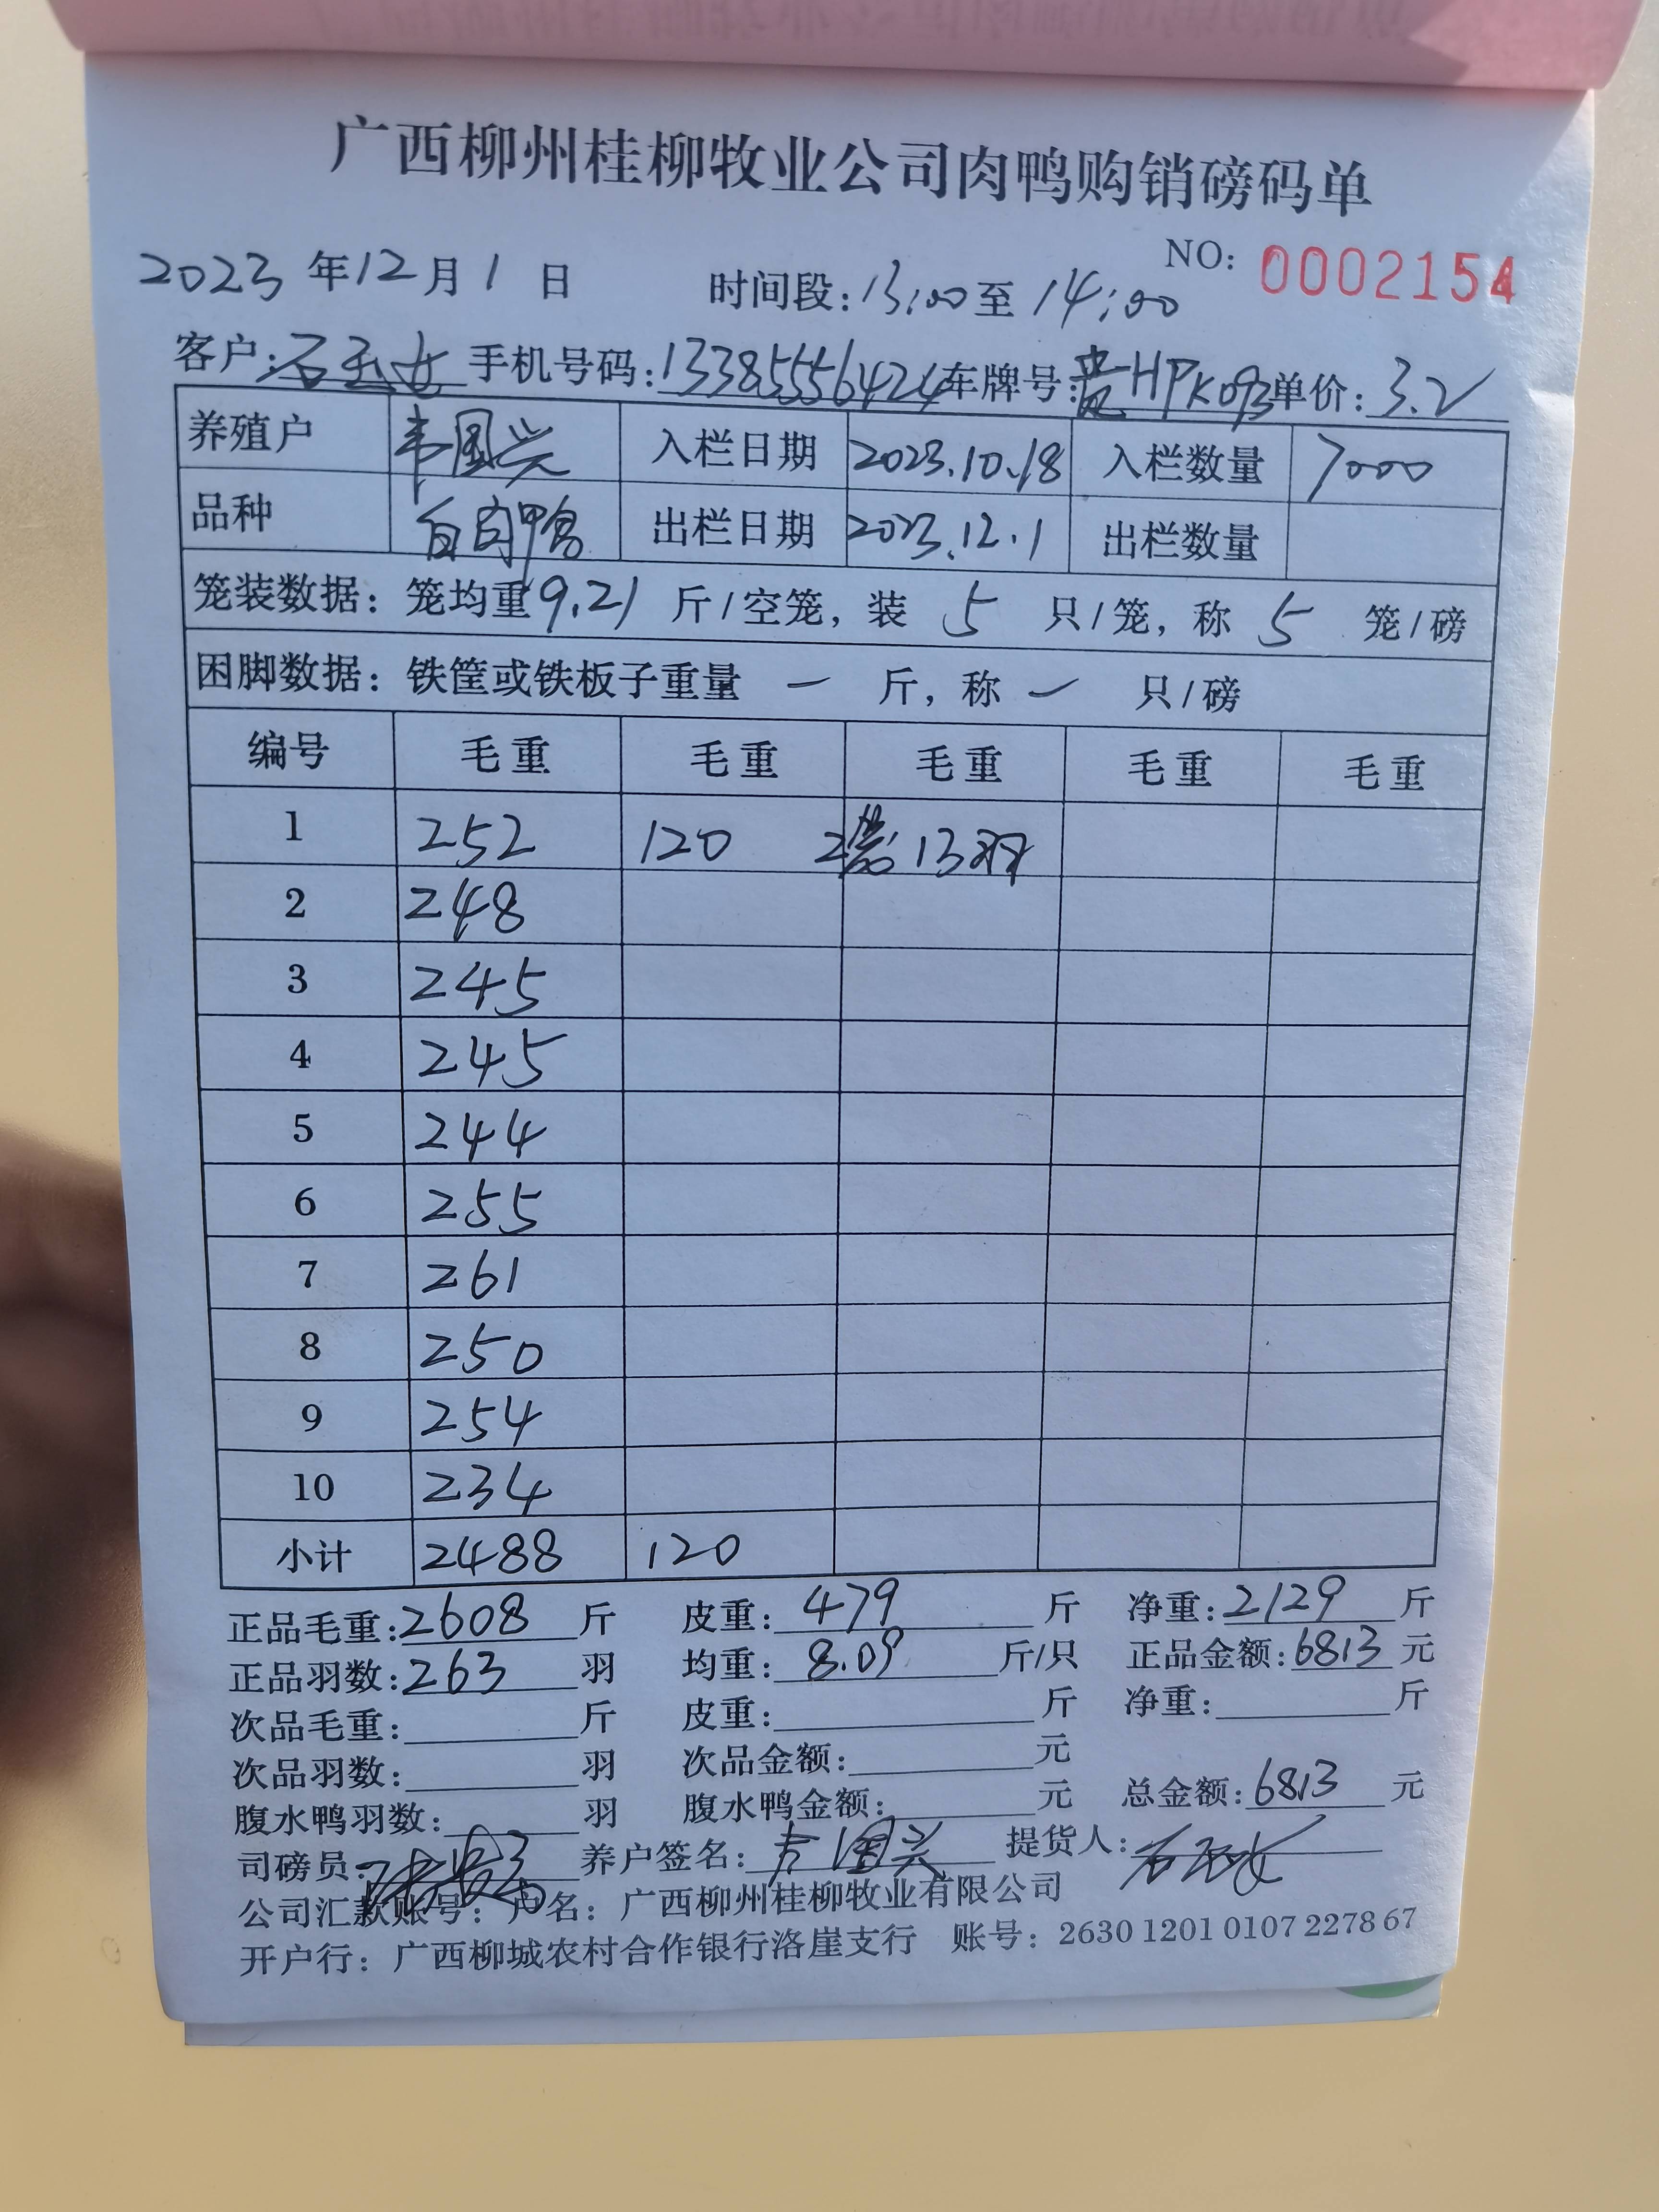 广西柳州桂柳牧业公司肉鸭购销磅码单
NO: 0002154
2023 年 12 月 1 日 时间段: 13:00 至 14:00
客户: 石玉女 手机号码: 13385556424 车牌号: 贵HPK093 单价: 3.2
养殖户 韦国兴 入栏日期 2023.10.18 入栏数量 7000
品种 白肉鸭 出栏日期 2023.12.1 出栏数量
笼装数据: 笼均重 9.21 斤/空笼, 装 5 只/笼, 称 5 笼/磅
困脚数据: 铁筐或铁板子重量 一 斤, 称 一 只/磅
编号 毛重 毛重 毛重 毛重 毛重
1 252 120 2笼 13羽
2 248
3 245
4 245
5 244
6 255
7 261
8 250
9 254
10 234
小计 2488 120
正品毛重: 2608 斤 皮重: 479 斤 净重: 2129 斤
正品羽数: 263 羽 均重: 8.09 斤/只 正品金额: 6813 元
次品毛重: 斤 皮重: 斤 净重: 斤
次品羽数: 羽 次品金额: 元
腹水鸭羽数: 羽 腹水鸭金额: 元 总金额: 6813 元
司磅员: 养户签名: 韦国兴 提货人: 石玉女
公司汇款账号: 户名: 广西柳州桂柳牧业有限公司
开户行: 广西柳城农村合作银行洛崖支行 账号: 2630 1201 0107 2278 67